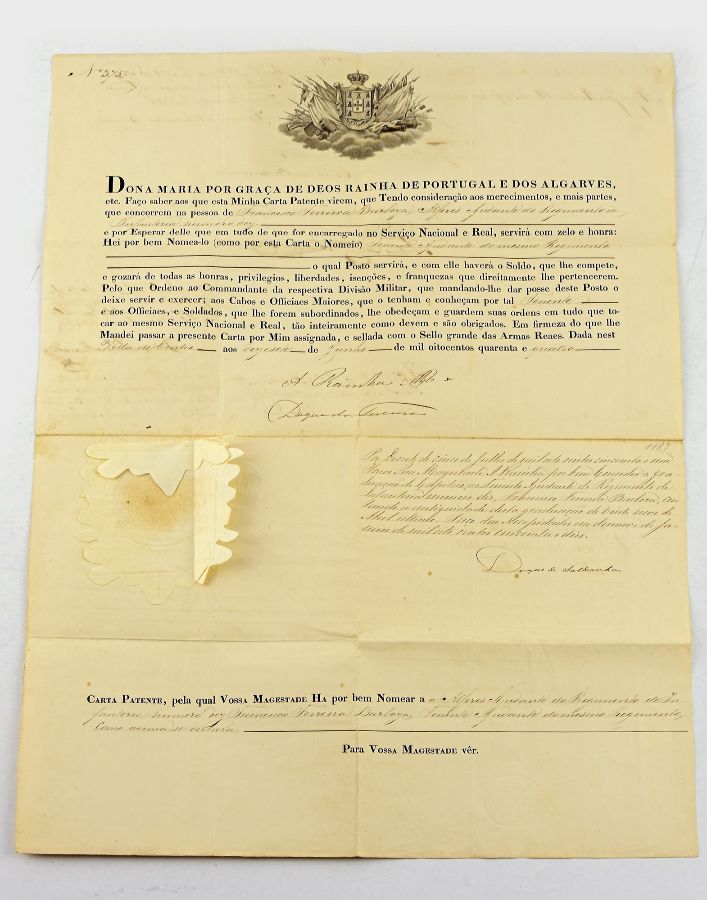 DONA MARIA POR GRAÇA DE DEOS RAINHA DE PORTUGAL E DOS ALGARVES,
etc. Faço saber aos que esta Minha Carta Patente virem, que Tendo consideração aos merecimentos, e mais partes,
que concorrem na pessoa de Francisco Ferreira Barboza, Alferes Ajudante do Regimento de
Infantaria numero dez
e por Esperar delle que em tudo de que for encarregado no Serviço Nacional e Real, servirá com zelo e honra:
Hei por bem Nomea-lo (como por esta Carta o Nomeio) Tenente Ajudante do mesmo Regimento
o qual Posto servirá, e com elle haverá o Soldo, que lhe compete,
e gozará de todas as honras, privilegios, liberdades, isenções, e franquezas que direitamente lhe pertencerem.
Pelo que Ordeno ao Commandante da respectiva Divisão Militar, que mandando-lhe dar posse deste Posto o
deixe servir e exercer; aos Cabos e Officiaes Maiores, que o tenham e conheçam por tal Tenente
e aos Officiaes, e Soldados, que lhe forem subordinados, que lhe obedeçam e guardem suas ordens em tudo que to-
car ao mesmo Serviço Nacional e Real, tão inteiramente como devem e são obrigados. Em firmeza do que lhe
Mandei passar a presente Carta por Mim assignada, e sellada com o Sello grande das Armas Reaes. Dada nest
aos de Junho de mil oitocentos quarenta e quatro
A Rainha
Duque da Terceira
Por Decreto de cinco de Julho de mil oito centos cincoenta e um
Houve Sua Magestade A Rainha por bem Conceder a gra-
duação de Capitão, ao Tenente Ajudante do Regimento de
Infantaria numero dez, Francisco Ferreira Barboza, con
tando a antiguidade desta graduação de vinte nove de
Abril ultimo. Paço das Necessidades em de Ja-
neiro de mil oito centos cincoenta e dois.
Duque de Saldanha
CARTA PATENTE, pela qual VOSSA MAGESTADE HA por bem Nomear a o Alferes Ajudante do Regimento de In-
fantaria numero dez Francisco Ferreira Barboza, Tenente Ajudante do mesmo regimento,
como acima se declara.
Para VOSSA MAGESTADE vêr.